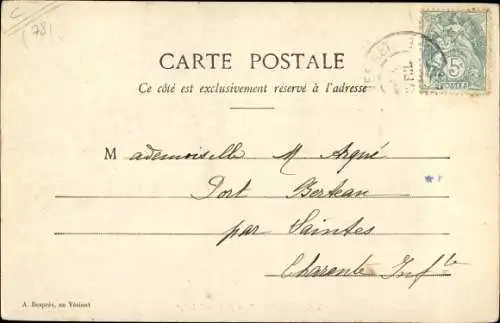 (78)
CARTE POSTALE
Ce côté est exclusivement réservé à l'adresse
5
POSTES
Mademoiselle M
Port Berteau
par Saintes
Charente Infre
A. Desprès, au Vésinet